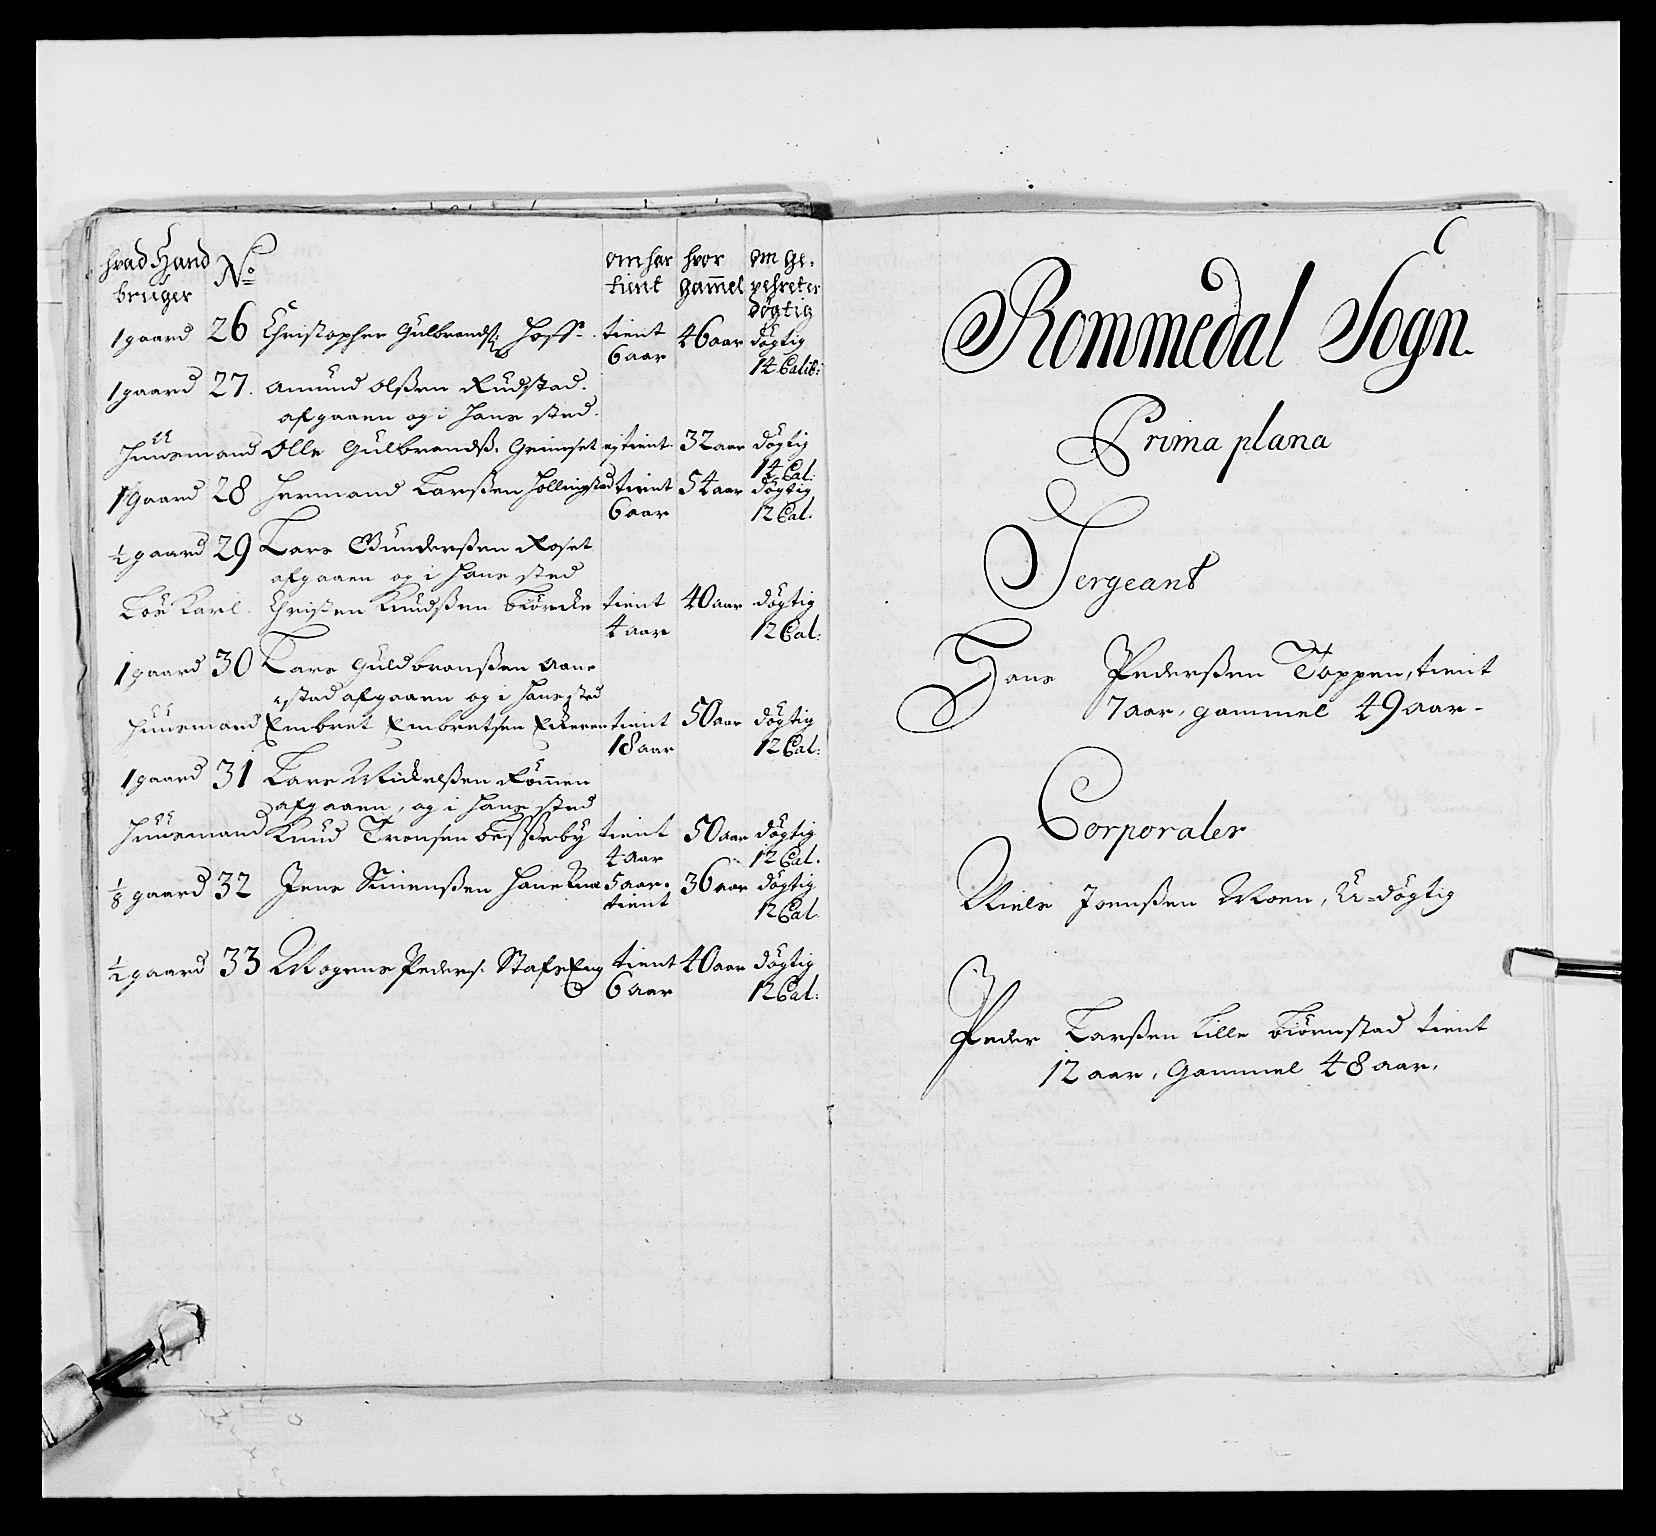 hvad Hand No om har hvor om ge-
bruger tient gammel vehreter
døgtig
1 gaard 26 Christopher Gulbrands: Hoff tient 46 aar døgtig
6 aar 14 Calib:
1 gaard 27. Amund Olßen Rudstad.
afgaaen og i hans sted.
Huusmand Olle Gulbrandß. Grimset ej tient 32 aar døgtig
14 Cal:
1 gaard 28 Hermand Larßen Hollingstad tient 54 aar døgtig
6 aar 12 Cal.
½ gaard 29 Lars Gunderßen Roset
afgaaen og i hans sted
Løs Karl. Christen Knudßen Biørcke tient 40 aar døgtig
4 aar 12 Cal:
1 gaard 30 Lars Guldbranßen Aane
stad afgaaen og i hans sted
Huusmand Embret Embretsen Ekeren tient 50 aar døgtig
18 aar 12 Cal:
1 gaard 31 Lars Mickelßen Rømmen
afgaaen, og i hans sted
Huusmand Knud Tronsen Beßeby tient 50 aar døgtig
4 aar 12 Cal.
⅛ gaard 32 Jens Simenßen 5 aar. 36 aar døgtig
tient 12 Cal.
½ gaard 33 Mogens Peders: StafsEng tient 40 aar døgtig
6 aar 12 Cal:
Rommedal Sogn.
Prima plana
Sergeant
Hans Pederßen Toppen, tient
7 aar, gammel 49 aar-
Corporaler
Niels Joenßen Moen, U-døgtig
Peder Larßen Lille Biørnstad tient
12 aar, Gammel 48 aar.